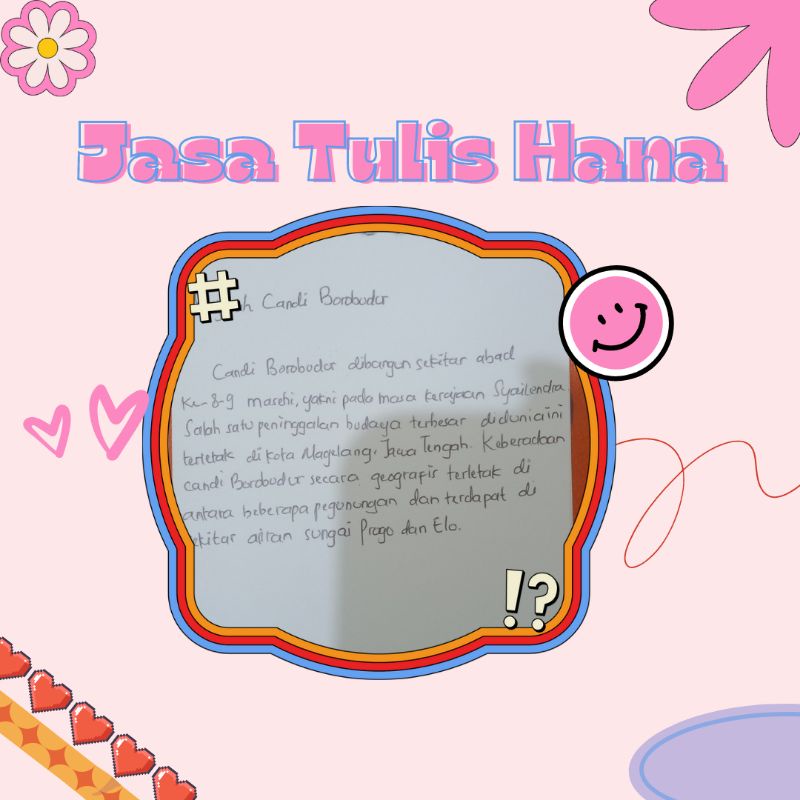 Jasa Tulis Hana
#
Candi Borobudur
Candi Borobudur dibangun sekitar abad
Ke-8-9 masehi, yakni pada masa kerajaan Syailendra
Salah satu peninggalan budaya terbesar didunia ini
terletak di Kota Magelang, Jawa Tengah. Keberadaan
candi Borobudur secara geografis terletak di
antara beberapa pegunungan dan terdapat di
sekitar aliran sungai Progo dan Elo.
!?